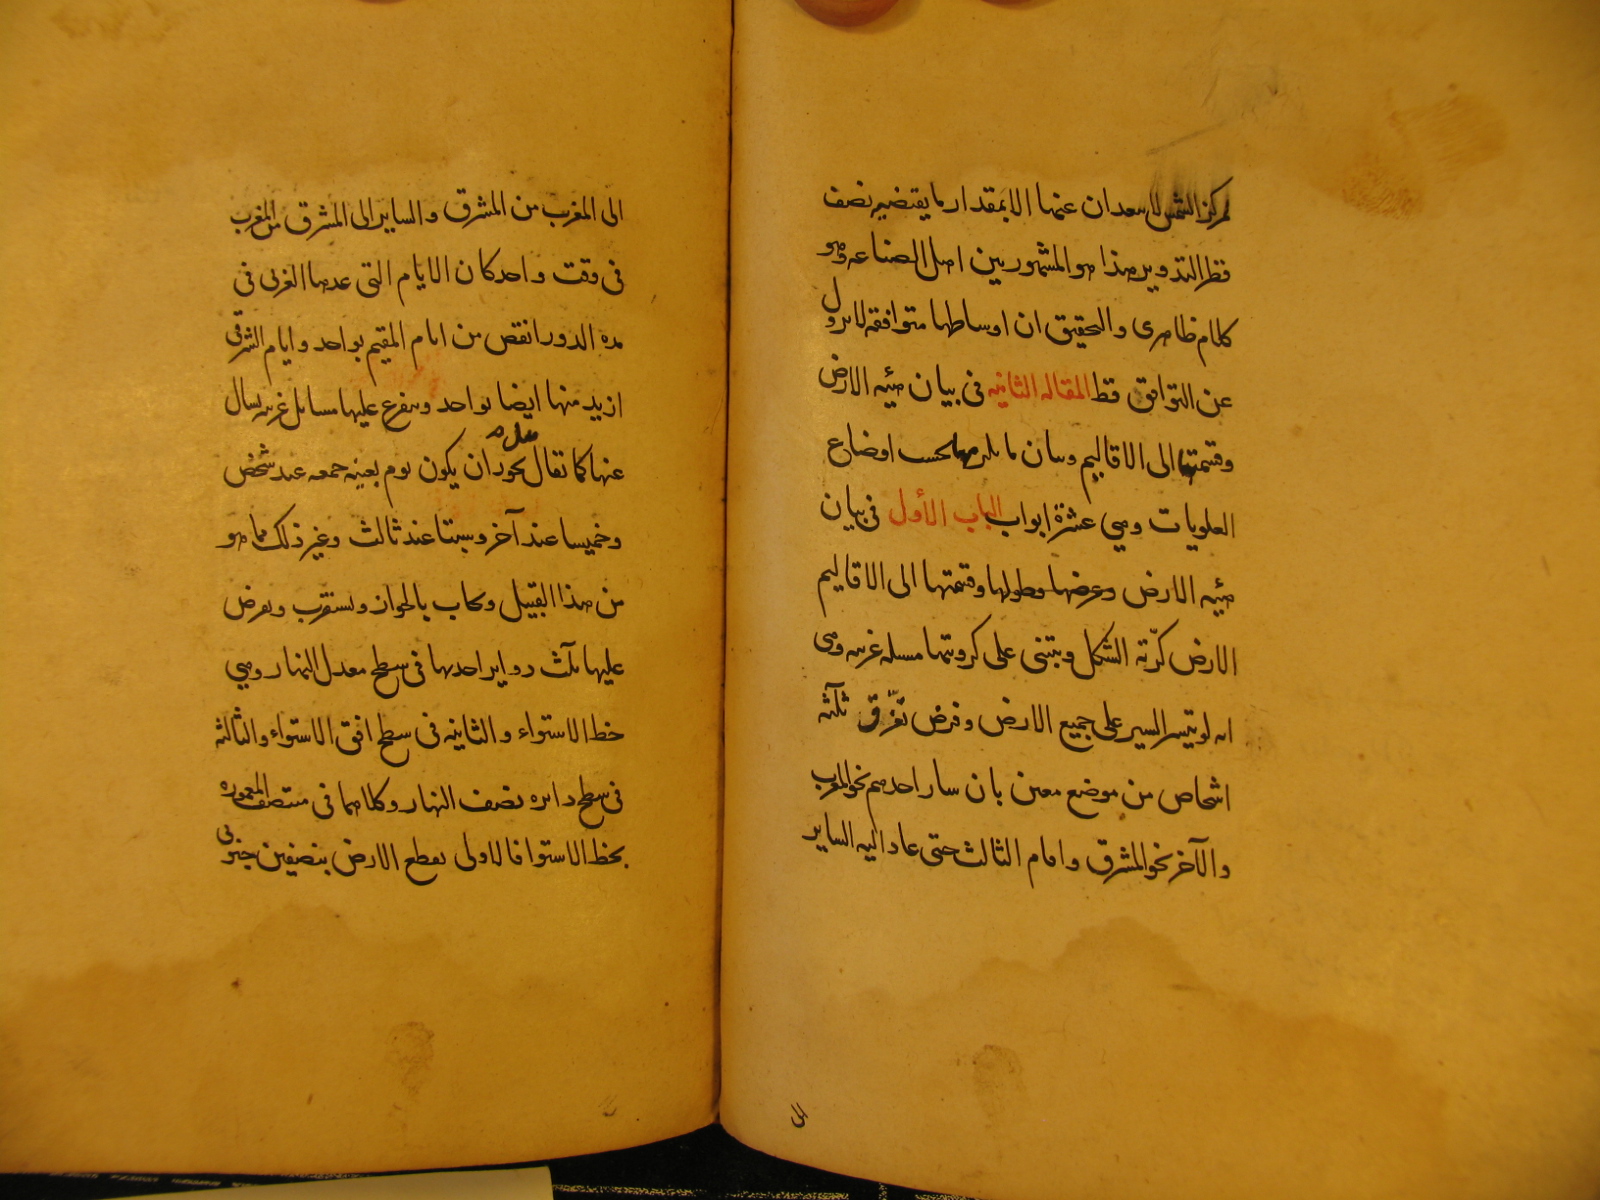 لمركز الشمس لا يبعدان عنها الا بمقدار ما يقتضيه نصف
قطر التدوير هذا هو المشهور بين اهل الصناعه وهو
كلام ظاهرى والتحقيق ان اوساطها متوافقه لا يزول
عن التوافق قط المقاله الثانيه فى بيان هيئه الارض
وقسمتها الى الاقاليم وبيان ما يلزمها بحسب اوضاع
العلويات وهي عشرة ابواب الباب الأول فى بيان
هيئه الارض وعرضها وطولها وقسمتها الى الاقاليم
الارض كرّية الشكل ويبتنى على كرويتها مسئله غريبه وهى
انه لو تيسر السير على جميع الارض وفرض تفرّق ثلثة
اشخاص من موضع معين بان سار احدهم نحو المغرب
والآخر نحو المشرق واقام الثالث حتى عاد اليه الساير
الى
الى المغرب من المشرق والساير الى المشرق من المغرب
فى وقت واحد كان الايام التى عدها الغربى فى
مده الدور انقص من ايام المقيم بواحد وايام الشرقى
ازيد منها ايضا بواحد ويتفرع عليها مسايل غريبه يسال
عنها كما يقال يجوز ان يكون يوم بعينه جمعه عند شخص
وخميسا عند آخر وسبتا عند ثالث وغير ذلك مما هو
من هذا القبيل ويجاب بالجواز ويستغرب ويفرض
عليها ثلث دواير احديها فى سطح معدل النهار وهي
خط الاستواء والثانيه فى سطح افق الاستواء والثالثه
فى سطح دايره نصف النهار وكلاهما فى منتصف المعموره
بخط الاستوا فالاولى يقطع الارض بنصفين جنوبى